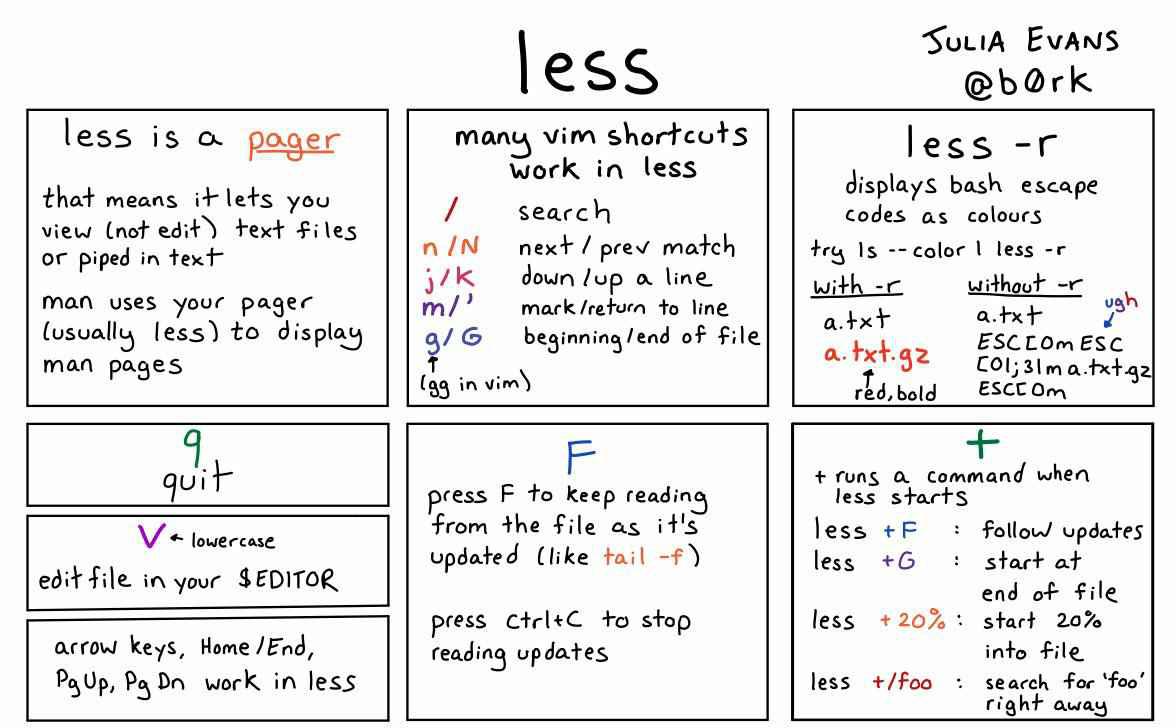 less
JULIA EVANS
@b0rk
less is a pager
that means it lets you
view (not edit) text files
or piped in text
man uses your pager
(usually less) to display
man pages
many vim shortcuts
work in less
/ search
n/N next/prev match
j/k down/up a line
m/' mark/return to line
g/G beginning/end of file
(gg in vim)
less -r
displays bash escape
codes as colours
try ls --color | less -r
with -r
a.txt
a.txt.gz
red, bold
without -r
ugh
a.txt
ESC[0m ESC
[01;31m a.txt.gz
ESC[0m
q
quit
v ← lowercase
edit file in your $EDITOR
arrow keys, Home/End,
PgUp, PgDn work in less
F
press F to keep reading
from the file as it's
updated (like tail -f)
press Ctrl+C to stop
reading updates
+
+ runs a command when
less starts
less +F : follow updates
less +G : start at
end of file
less +20% : start 20%
into file
less +/foo : search for 'foo'
right away